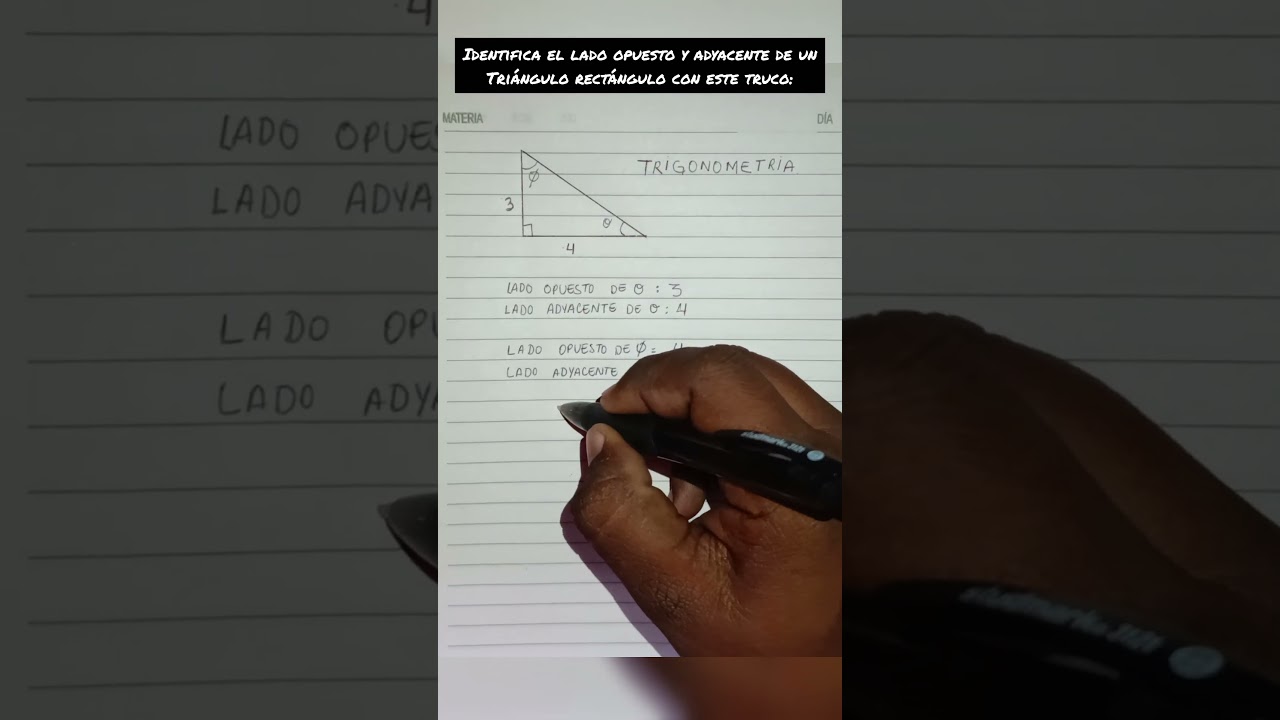 IDENTIFICA EL LADO OPUESTO Y ADYACENTE DE UN
TRIÁNGULO RECTÁNGULO CON ESTE TRUCO:
MATERIA
DÍA
TRIGONOMETRIA
φ
3
θ
4
LADO OPUESTO DE θ : 3
LADO ADYACENTE DE θ : 4
LADO OPUESTO DE φ = 4
LADO ADYACENTE
4
LADO OPUE
LADO ADYA
LADO OPU
LADO ADY